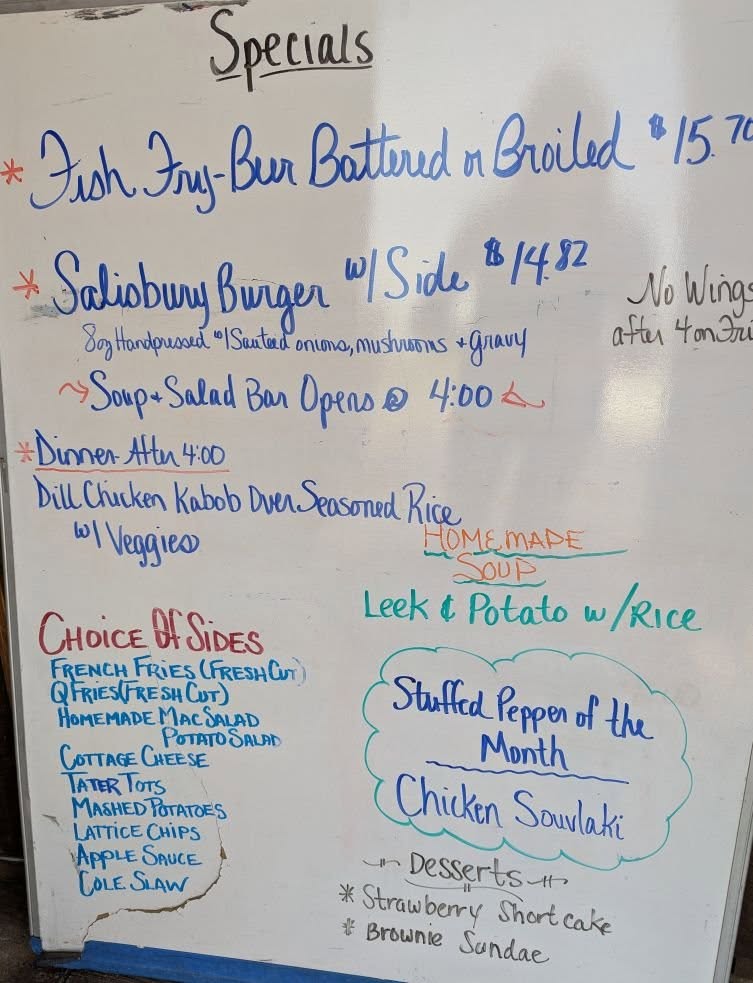 Specials
* Fish Fry-Beer Battered or Broiled $15.70
* Salisbury Burger w/ Side $14.82
8oz Handpressed w/ Sauteed onions, mushrooms + gravy
No Wings
after 4 on Fri
Soup + Salad Bar Opens @ 4:00
* Dinner After 4:00
Dill Chicken Kabob Over Seasoned Rice
w/ Veggies
HOMEMADE
SOUP
Leek & Potato w/Rice
CHOICE OF SIDES
FRENCH FRIES (FRESH CUT)
Q FRIES (FRESH CUT)
HOMEMADE MAC SALAD
POTATO SALAD
COTTAGE CHEESE
TATER TOTS
MASHED POTATOES
LATTICE CHIPS
APPLE SAUCE
COLE SLAW
Stuffed Pepper of the
Month
Chicken Souvlaki
Desserts
* Strawberry Shortcake
* Brownie Sundae